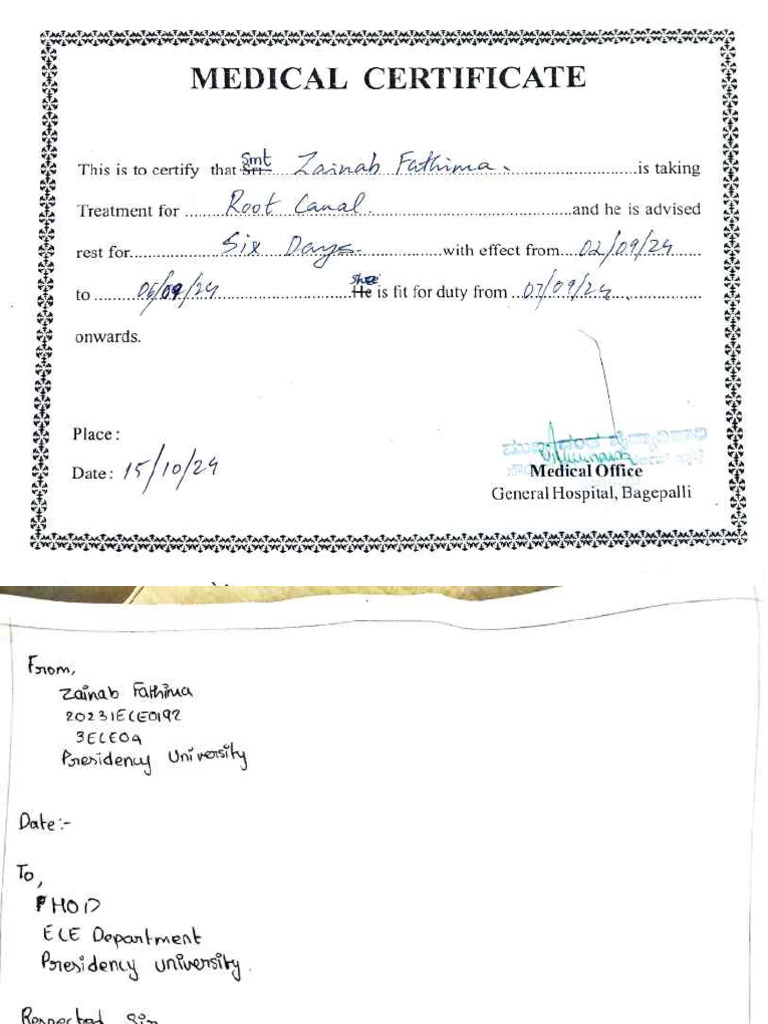 MEDICAL CERTIFICATE
This is to certify that Sri. Smt Zainab Fathima. is taking
Treatment for Root Canal. and he is advised
rest for Six Days with effect from 02/09/24
to 06/09/24 He She is fit for duty from 07/09/24
onwards.
Place :
Date : 15/10/24
Medical Office
General Hospital, Bagepalli
From,
Zainab Fathima
20231ELE0192
3ELE04
Presidency University
Date:-
To,
HOD
ELE Department
Presidency university.
Respected Sir